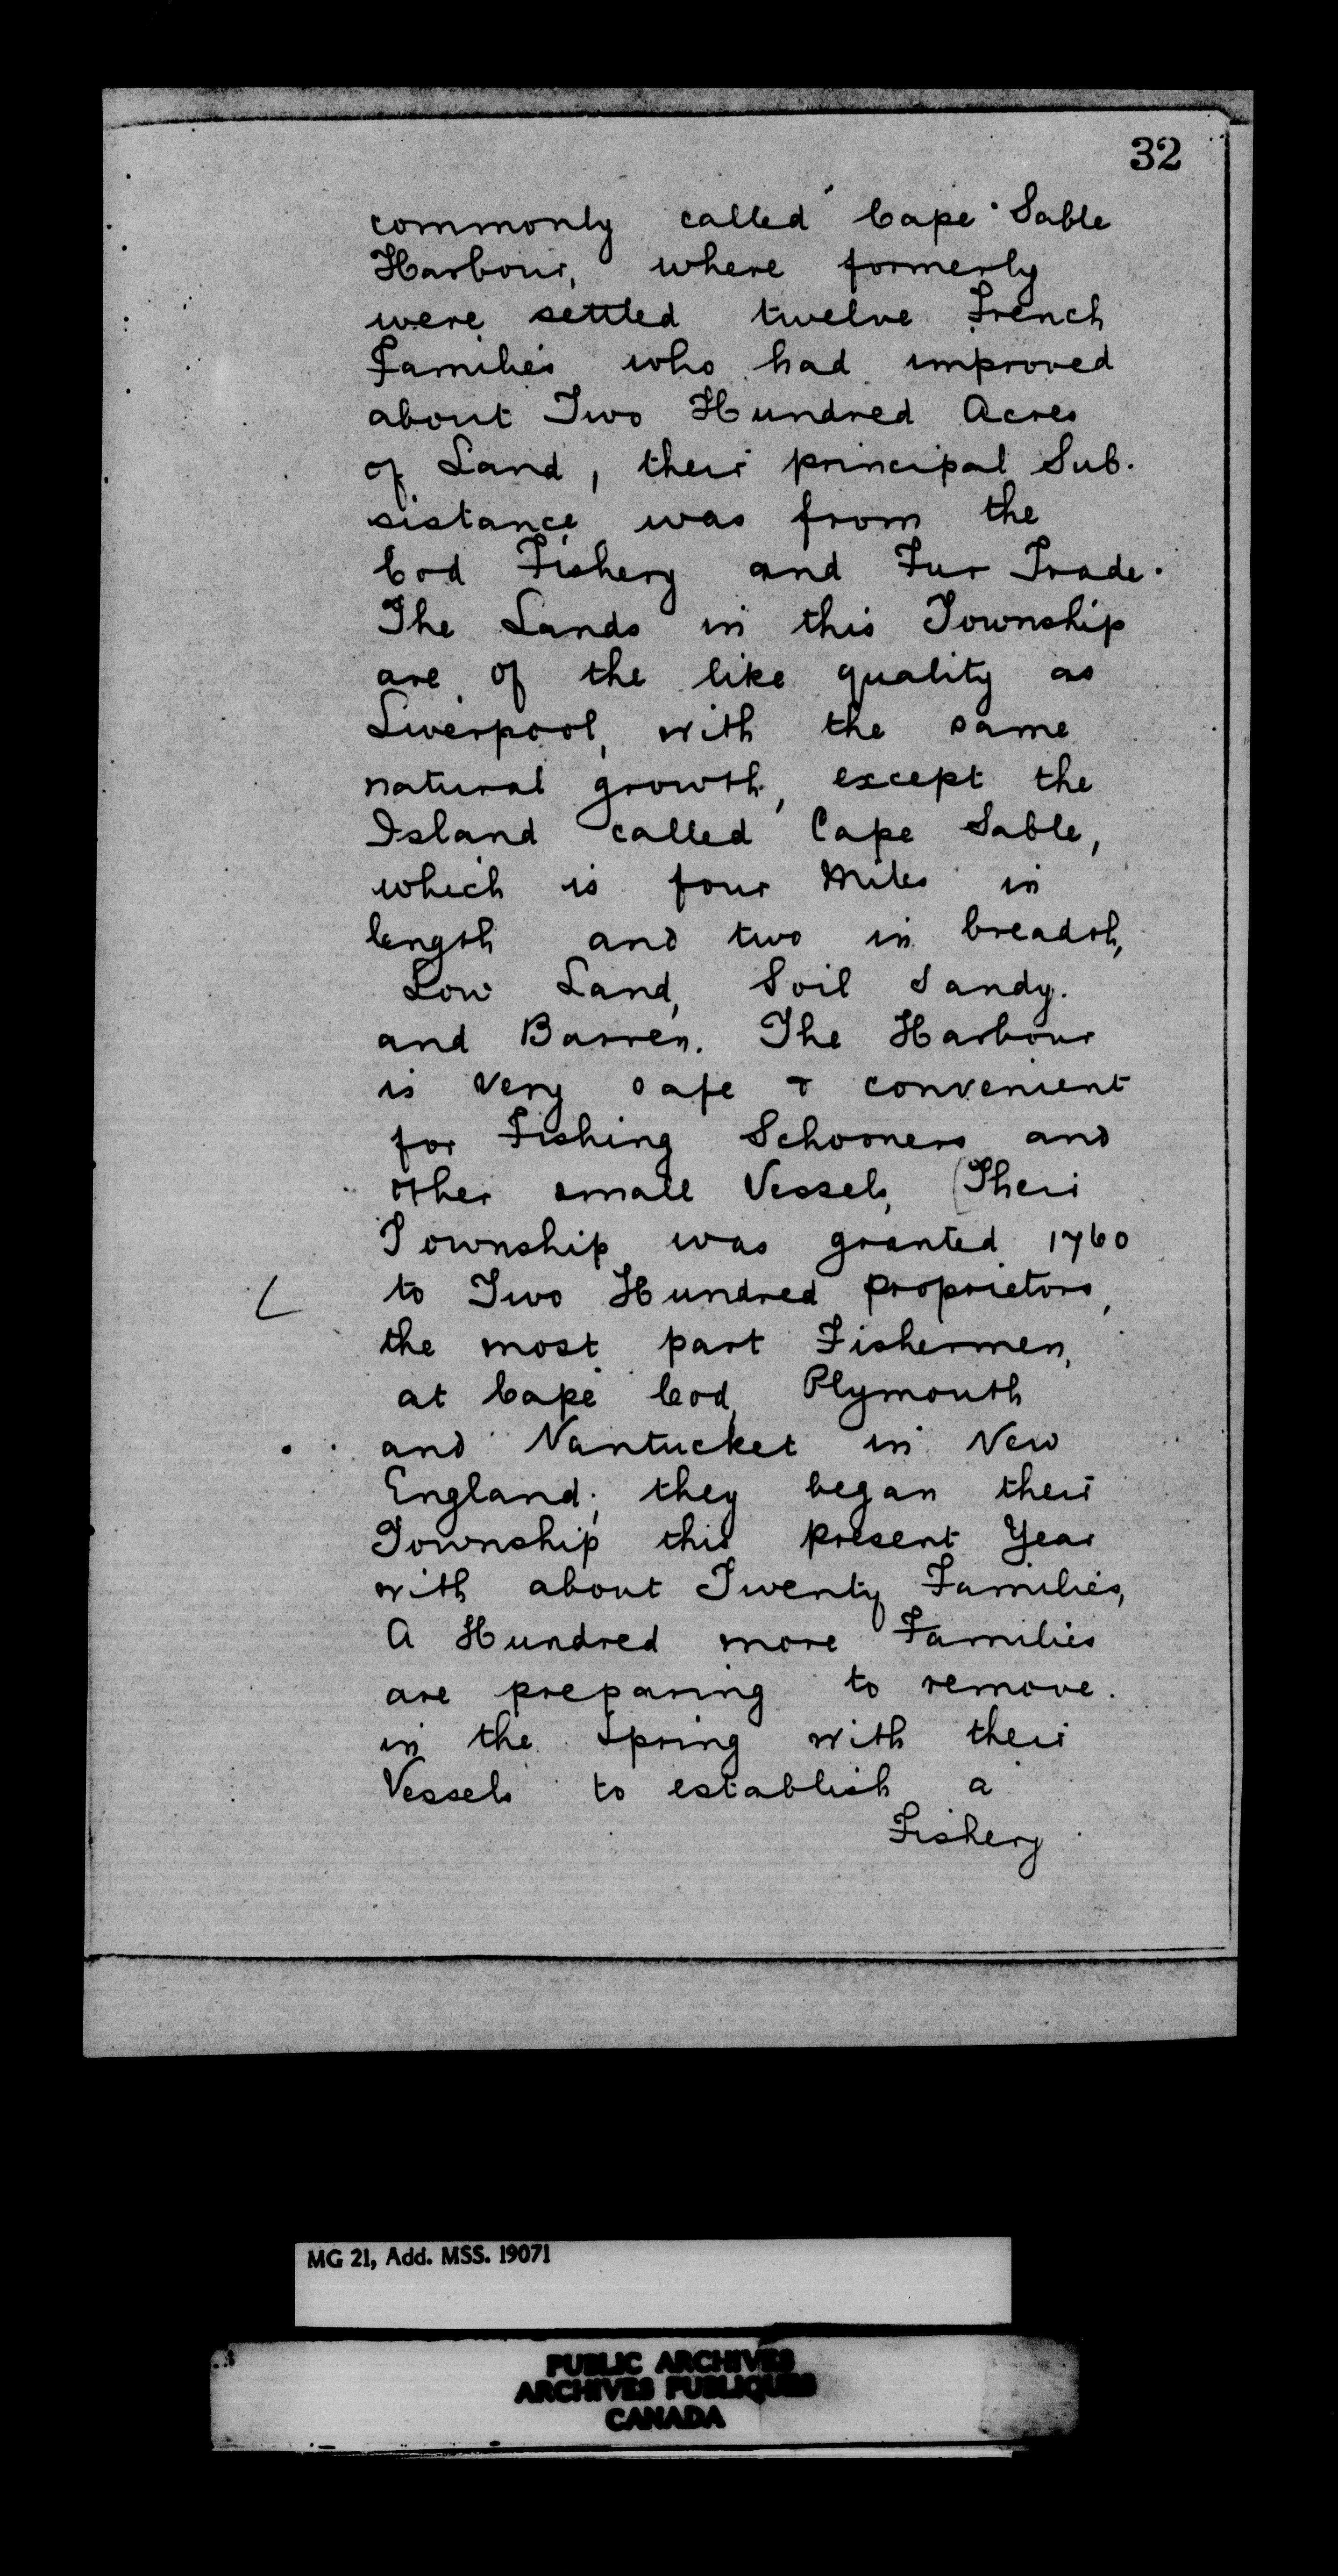 32
commonly called Cape Sable
Harbour, where formerly
were settled twelve French
Families who had improved
about Two Hundred Acres
of Land, their principal Sub-
sistance was from the
Cod Fishery and Fur Trade.
The Lands in this Township
are of the like quality as
Liverpool, with the same
natural growth, except the
Island called Cape Sable,
which is four Miles in
length and two in breadth,
Low Land, Soil Sandy.
and Barren. The Harbour
is very safe & convenient
for Fishing Schooners and
other small Vessels, (Their
Township was granted 1760
to Two Hundred proprietors,
the most part Fishermen,
at Cape Cod, Plymouth
and Nantucket in New
England; they began their
Township this present Year
with about Twenty Families,
A Hundred more Families
are preparing to remove.
in the Spring with their
Vessels to establish a
Fishery
MG 21, Add. MSS. 19071
PUBLIC ARCHIVES
ARCHIVES PUBLIQUES
CANADA